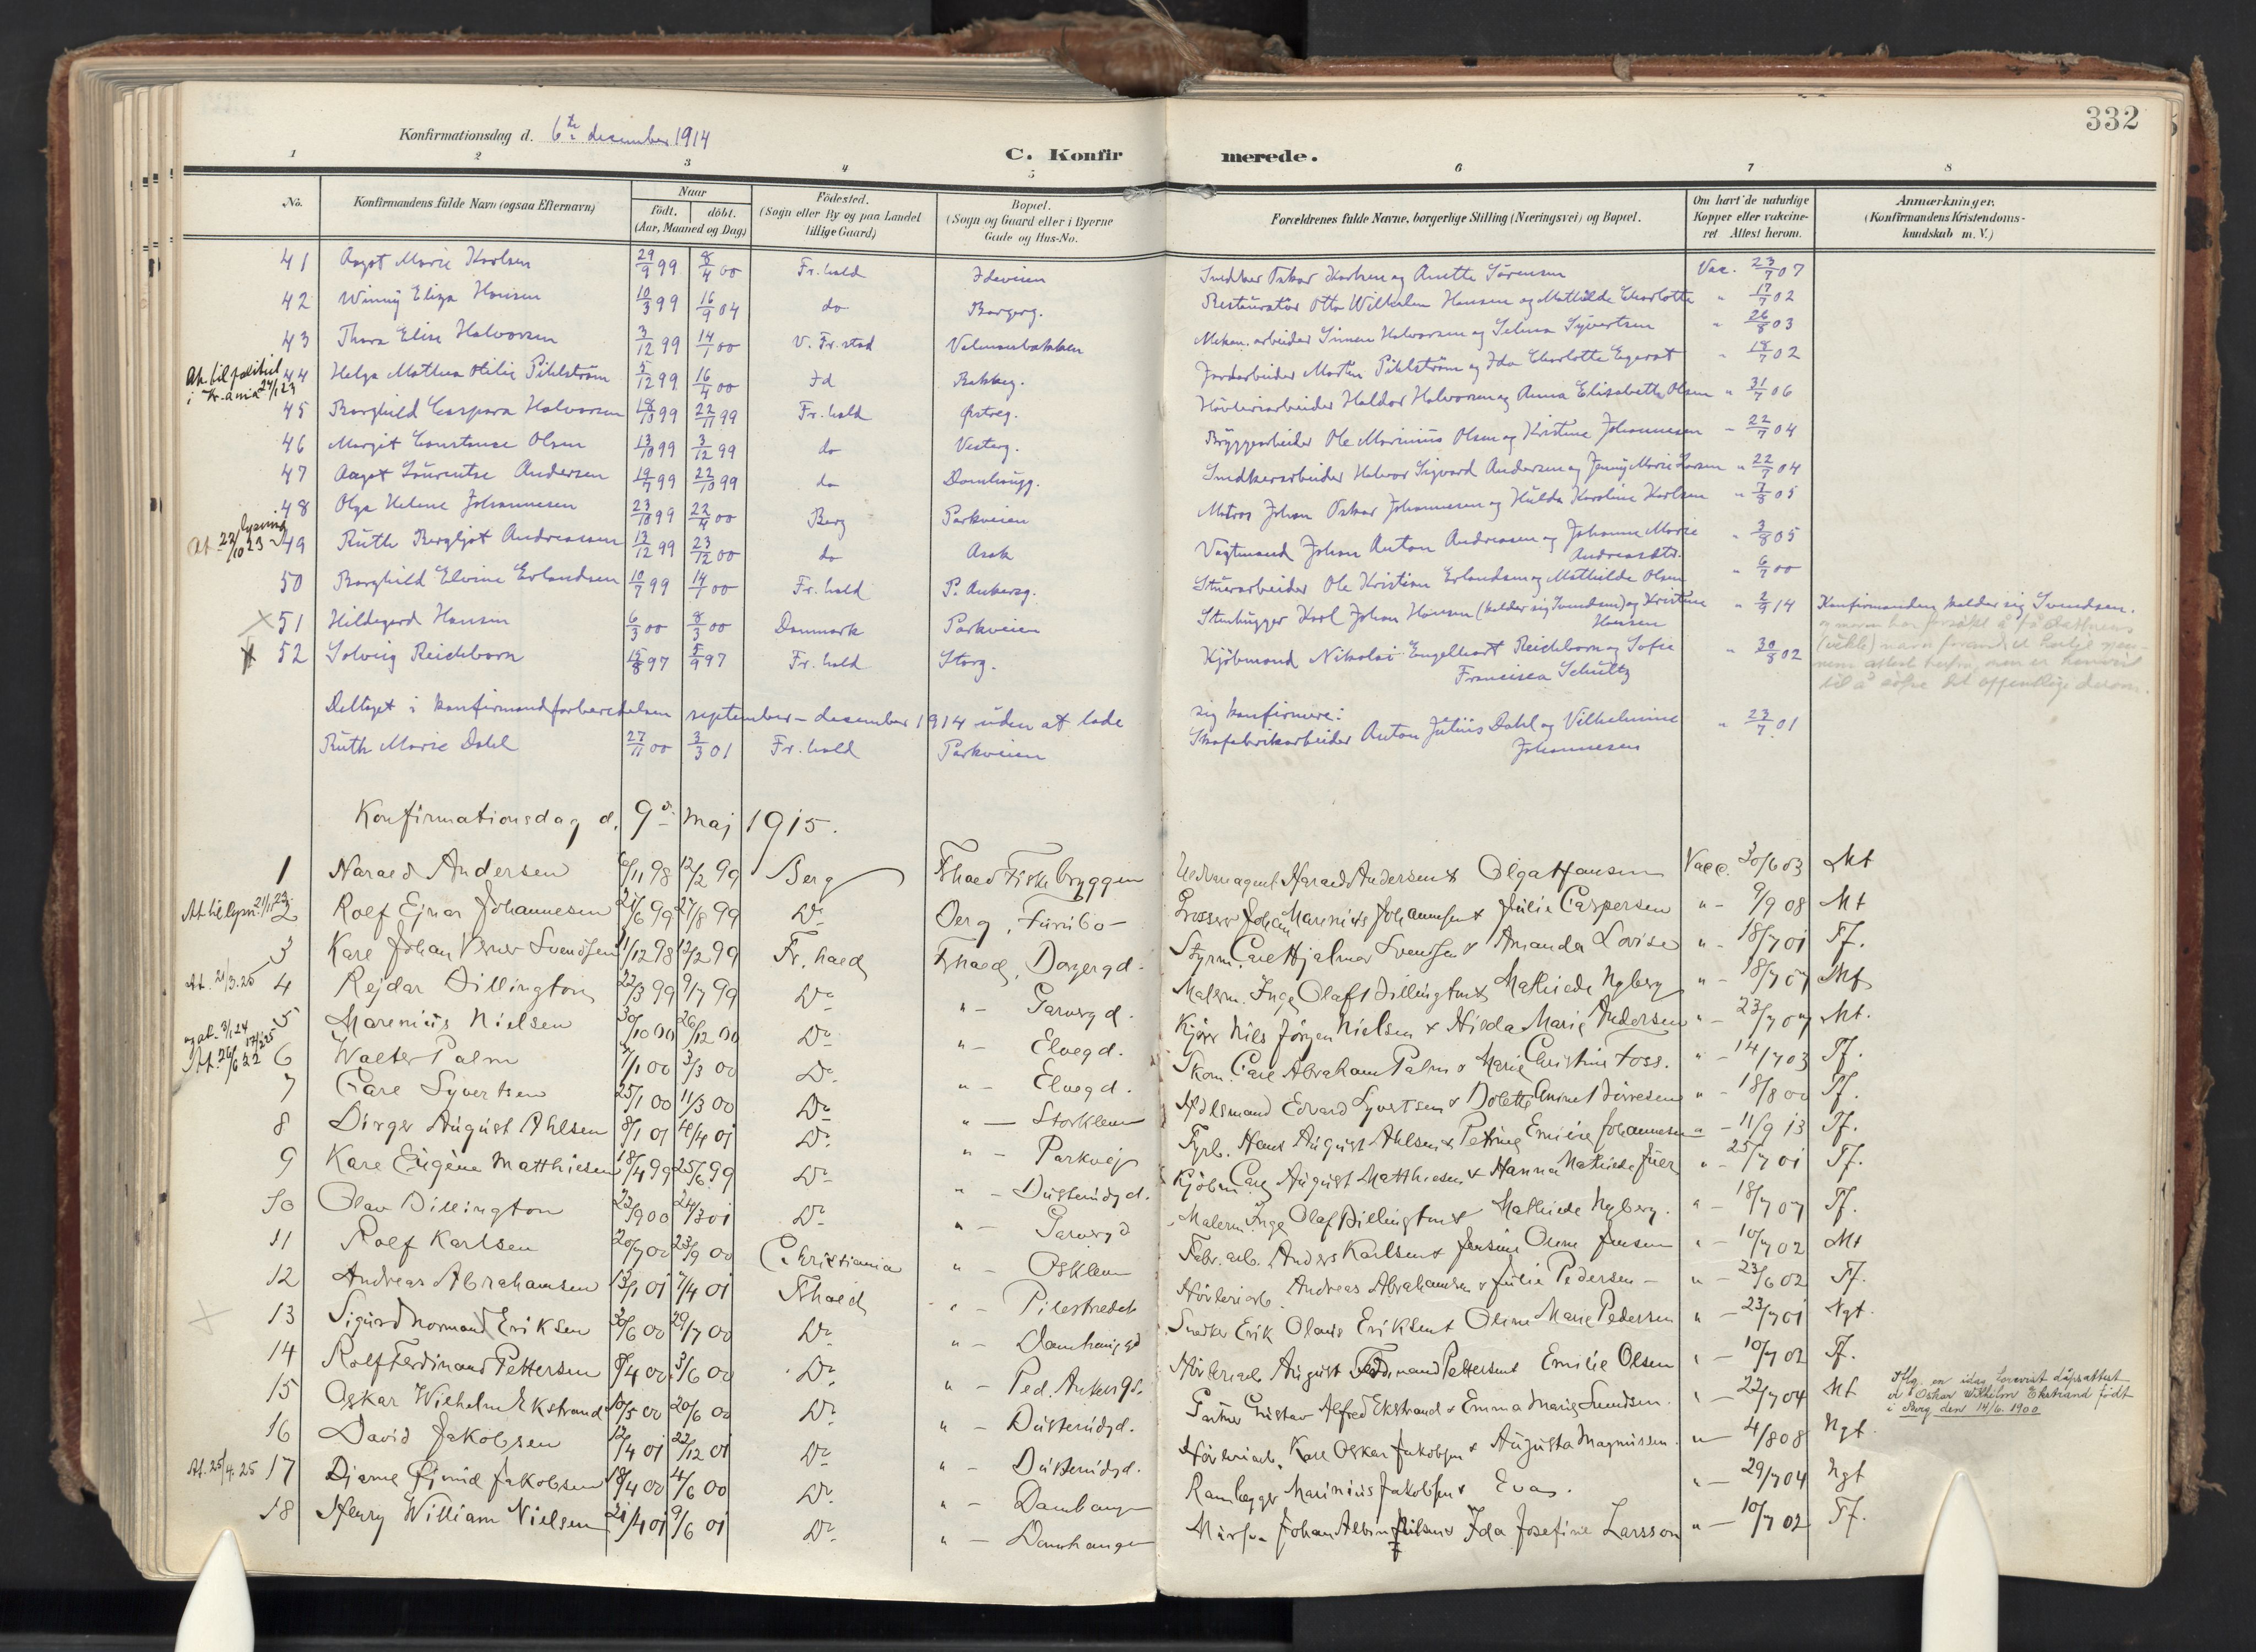 332
Konfirmationsdag d. 6te desember 1914
C. Konfirmerede.
1 2 3 4 5 6 7 8
No. Konfirmandens fulde Navn (ogsaa Efternavn) Naar født, døbt. (Aar, Maaned og Dag) Födested. (Sogn eller By og paa Landet tillige Gaard) Bopæl. (Sogn og Gaard eller i Byerne Gade og Hus-No. Forældrenes fulde Navne, borgerlige Stilling (Næringsvei) og Bopæl. Om havt de naturlige Kopper eller vakcineret Attest herom. Anmærkninger. (Konfirmandens Kristendomskundskab m. V.)
41 Aagot Marie Karlsen 29/9 99 8/4 00 Fr.hald Ideveien Snedker Oskar Karlsen og Anette Sörensen Vac. 23/7 07
42 Winny Eliza Hansen 10/3 99 16/9 04 do Borgerg. Restauratör Otto Wilhelm Hansen og Mathilde Charlotte " 17/7 02
43 Thora Elise Halvorsen 3/12 99 14/1 00 V. Fr.stad Volmanbakken Mekan. arbeider Simen Halvorsen og Selma Syvertsen " 26/8 03
44 Helga Mathea Otilie Pihlström 5/12 99 16/4 00 Id Bakkeg. Jordarbeider Martin Pihlström og Ida Charlotte " 18/7 02
At. til politiet i Kr.ania 24/1 23
45 Borghild Caspara Halvorsen 18/10 99 22/11 99 Fr.hald Østreg. Hövleriarbeider Haldor Halvorsen og Anna Elisabeth Olsen " 31/7 06
46 Margit Constanse Olsen 13/10 99 3/12 99 do Vesterg. Bryggearbeider Ole Marinius Olsen og Kristine Johannesen - 22/7 04
47 Aagot Laurentse Andersen 19/7 99 22/10 99 do Damhaugg. Snedkerarbeider Halvor Sigvard Andersen og Jenny Marie Larsen " 22/7 04
48 Olga Helene Johannesen 23/10 99 22/4 00 Berg Parkveien Matros Johan Oskar Johannesen og Hulda Karoline Karlsen " 7/8 05
At. lysning 22/10 23 49 Ruth Bergljot Andreassen 13/12 99 23/12 00 do Asak Vagtmand Johan Anton Andreasen og Johanne Marie Andreasdtr. " 3/8 05
50 Borghild Elvine Erlandsen 10/7 99 14/1 00 Fr.hald P. Ankersg. Stuerarbeider Ole Kristian Erlandsen og Mathilde Olsen " 6/7 00
51 Hildegard Hansen 6/3 00 8/3 00 Danmark Parkveien Stenhugger Karl Johan Hansen (kalder sig Svendsen) og Kristine Hansen " 2/9 14 Konfirmanden kalder sig Svendsen.
52 Solveig Reichborn 15/8 97 5/9 97 Fr.hald Storg. Kjöbmand Nikolai Engelhart Reichborn og Sofie Francisca Schultz " 30/8 02
Deltaget i konfirmandforberedelsen september - desember 1914 uden at lade sig konfirmere:
Ruth Marie Dahl 27/11 00 3/3 01 Fr.hald Parkveien Skofabrikarbeider Anton Julius Dahl og Vilhelmine Johannesen " 23/7 01
Konfirmationsdag d. 9de Maj 1915.
1 Harald Andersen 6/11 98 12/2 99 Berg Fhald Fiskebryggen Harald Andersen & Olga Hansen Vacc. 30/6 03 Mt
2 Rolf Ejnar Johannesen 21/6 99 27/8 99 Do Berg, Furubo Grosserer Johan Marenius Johannesen & Julie Caspersen " - 9/9 08 Mt
3 Karl Johan Verner Svendsen 11/12 98 12/2 99 Fr.hald Fhald, Borgergd. Styrm. Carl Hjalmar Svendsen & Amanda Lovise " - 18/7 01 Tf.
At. 21/3.25 4 Rejdar Billington 22/3 99 9/7 99 Do " - Garverg d. Malerm. Inge Olaf Billington & Mathilde Nyberg " - 18/7 07 Mt
5 Marenius Nielsen 30/10 00 26/12 00 Do " - Elvegd. Kjörer Nils Jörgen Nielsen & Hilda Marie Andersen " - 23/7 07 Mt.
6 Walter Palm 7/1 00 3/3 00 Do " - Elvegd. Skom. Carl Abraham Palm & Marie Christine Foss. " - 14/7 03 Tf.
7 Carl Syvertsen 25/1 00 11/3 00 Do " - Storklem Edvard Syvertsen & Dolette " - 18/8 00 Tf.
8 Birger August Ahlsen 8/1 01 4/4 01 Do " - Parkvej Fyrb. Hans August Ahlsen & Petrine Emilie Johannesen " - 11/9 13 Tf.
9 Karl Eugène Matthiesen 18/4 99 25/6 99 Do " - Busterudgd. Kjöbm. Carl August Matthiesen & Hanna Mathilde Juel " - 25/7 01 Tf.
10 Olav Billington 22/9 00 24/3 01 Do " - Garvergd Malerm. Inge Olaf Billington & Mathilde Nyberg. " - 18/7 07 Tf.
11 Rolf Karlsen 20/7 00 23/9 00 Christiania " - Osklem Fabr.arb. Anders Karlsen & Jensine Oline Jensen " - 10/7 02 Mt
12 Andreas Abrahamsen 13/1 01 7/4 01 Fhald " - Pilestredet Hövleriarb. Andreas Abrahamsen & Julie Pedersen - " - 23/6 02 Tf.
13 Sigurd Norman Eriksen 30/6 00 29/7 00 Do " - Damhauggd Snedker Erik Olaus Eriksen & Oline Marie Pedersen " - 23/7 01 Ngt.
14 Rolf Ferdinand Pettersen 8/4 00 3/6 00 Do " - Ped. Ankersgd. Hövleriarb August Ferdinand Pettersen & Emilie Olsen " - 10/7 02 Tf.
15 Oskar Wilhelm Ekstrand 10/5 00 20/6 00 Do " - Busterudgd. Gartner Gustav Alfred Ekstrand & Emma Marie Svendsen. " - 22/7 04 Mt
Iflg. en idag forevist dåpsattest er Oskar Wilhelm Ekstrand født i Berg den 14/6.1900
16 David Jakobsen 12/4 01 22/12 01 Do " - Busterudgd. Hövleriarb. Karl Oskar Jakobsen & Augusta Magnussen. " - 4/8 08 Ngt
At. 25/4.25 17 Bjarne Jakobsen 18/4 00 4/6 00 Do " - Damhaugen Marinius Jakobsen & Eva . " - 29/7 04 Ngt
18 Henry William Nielsen 21/4 01 9/6 01 Do " - Damhaugen Johan Albin Nilsen & Ida Josefine Larsson " - 10/7 02 Tf.